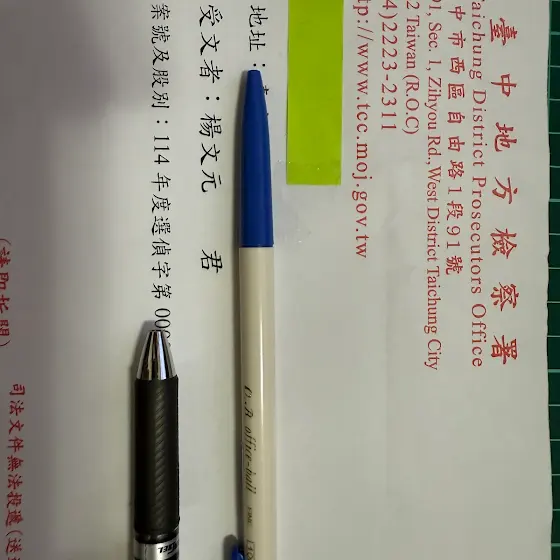 臺中地方檢察署
Taichung District Prosecutors Office
中市西區自由路1段91號
91, Sec. 1, Zihyou Rd., West District Taichung City
2 Taiwan (R.O.C)
4)2223-2311
tp://www.tcc.moj.gov.tw
地址：
受文者：楊文元 君
案號及股別：114年度選偵字第00
司法文件無法投遞
O.B. office-ball
GEL